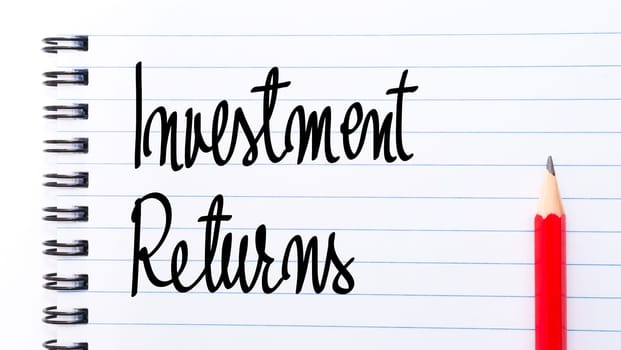 Investment
Returns